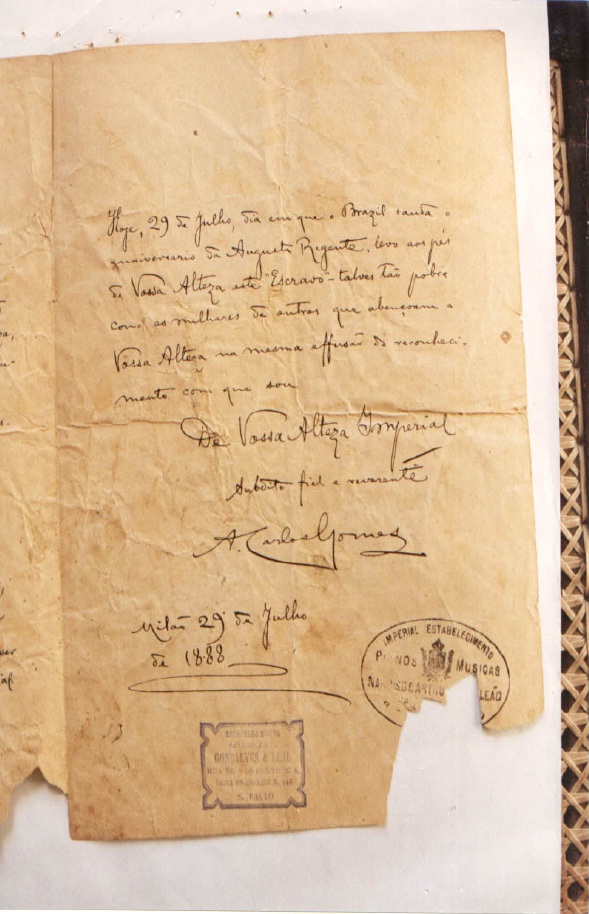 Hoje, 29 de Julho, dia em que o Brazil sauda o
anniversario da Augusta Regente, levo aos pés
de Vossa Alteza este "Escravo" - talves tão pobre
como as milhares de outros que abençoam a
Vossa Alteza na mesma effusão de reconheci-
mento com que sou
De Vossa Alteza Imperial
Subdito fiel e reverente
A. Carlos Gomes
Milão 29 de Julho
de 1888
IMPERIAL ESTABELECIMENTO
PIANOS MUSICAS
LEÃO
GONÇALVES & LEAL
S. PAULO